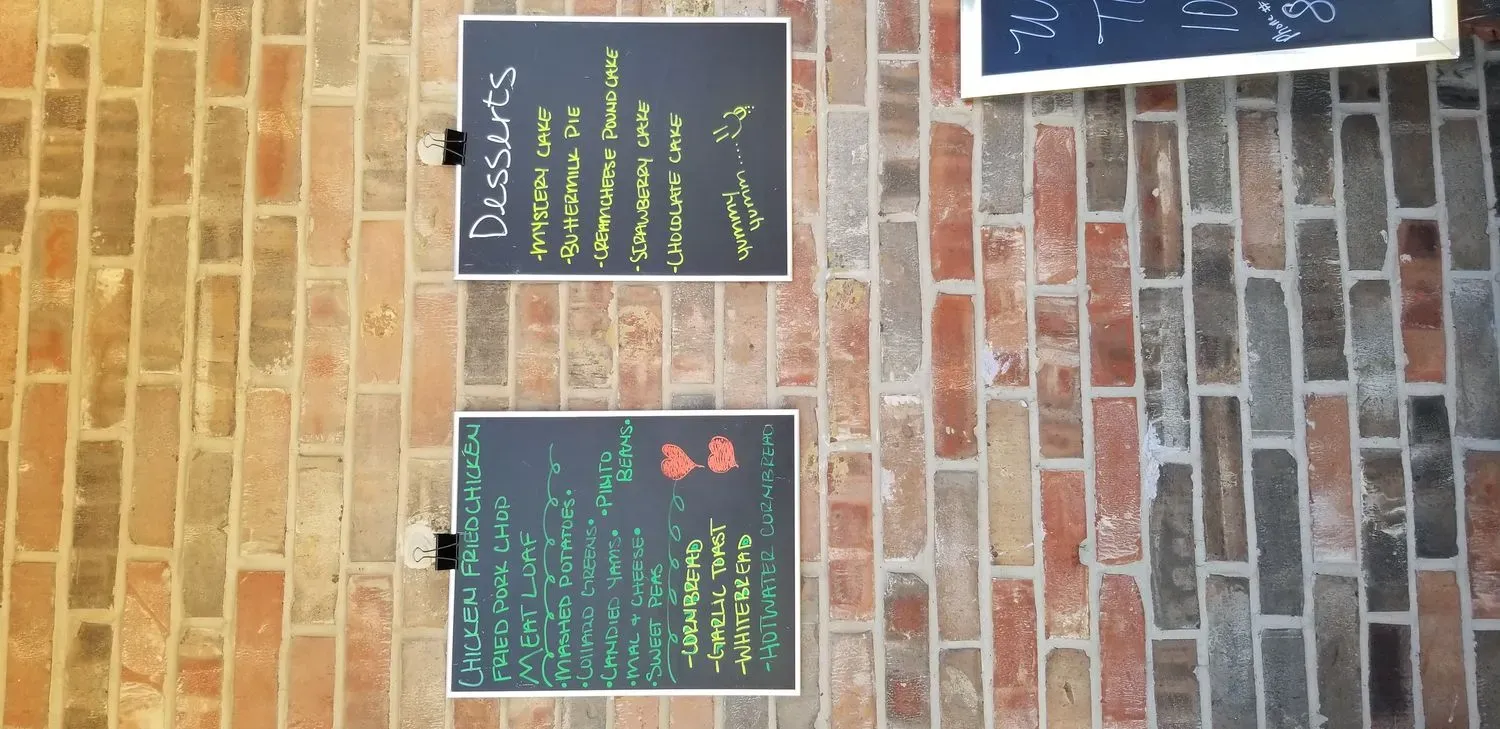 CHICKEN FRIED CHICKEN
FRIED PORK CHOP
MEAT LOAF
•MASHED POTATOES•
•COLLARD GREENS•
•CANDIED YAMS•
•PINTO
BEANS•
•MAC + CHEESE•
•SWEET PEAS
-CORNBREAD
-GARLIC TOAST
-WHITEBREAD
-HOTWATER CORNBREAD
Desserts
•MYSTERY CAKE
•BUTTERMILK PIE
•CREAMCHEESE POUNDCAKE
•STRAWBERRY CAKE
•CHOCOLATE CAKE
yummy
yumm.....
W
10
Phone#
8